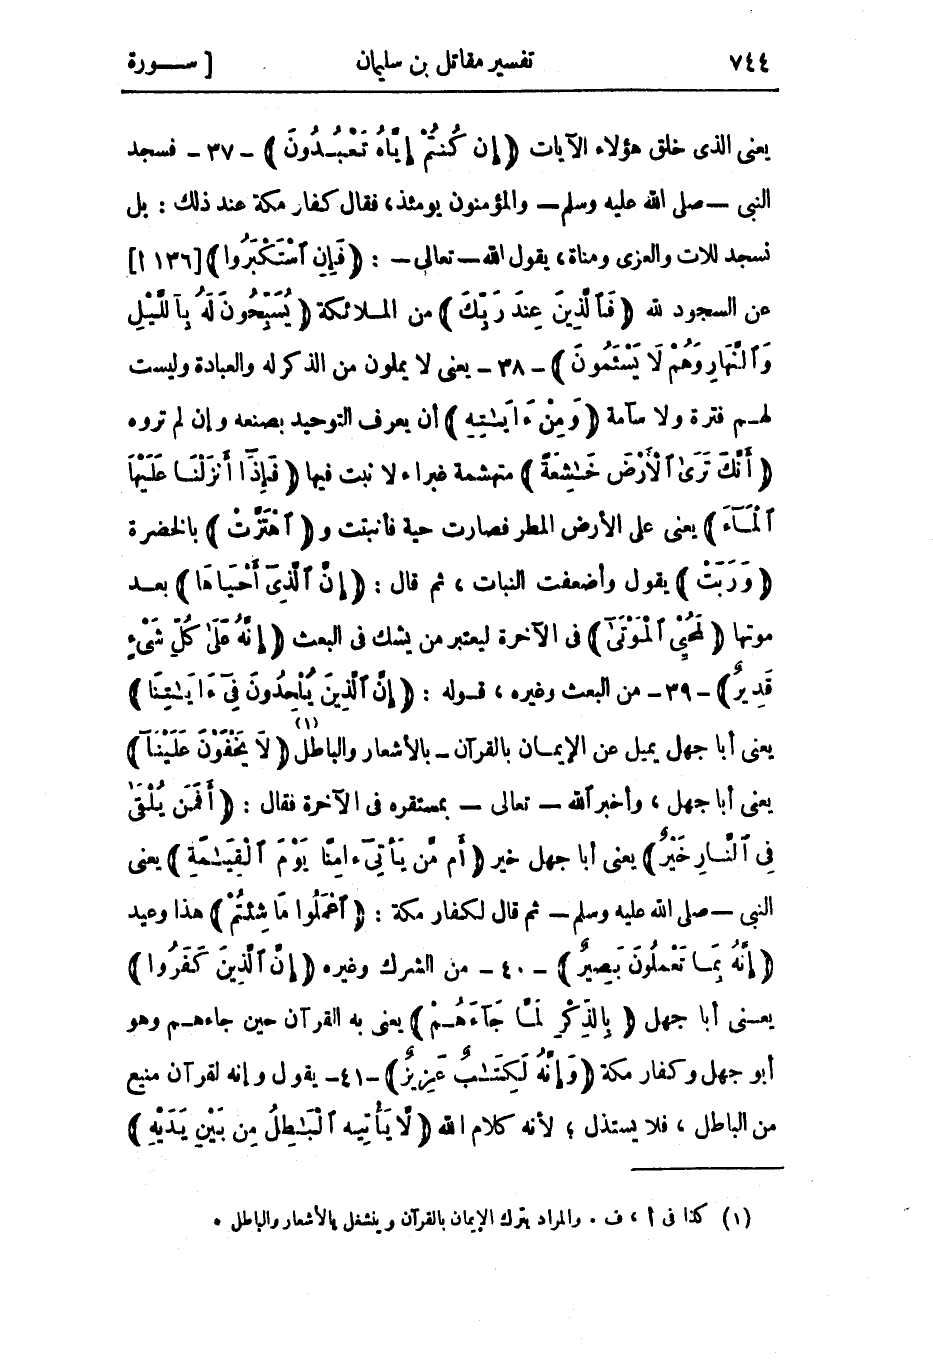 ٧٤٤ تفسير مقاتل بن سليمان [ ســورة
يعنى الذى خلق هؤلاء الآيات ( إِن كُنتُمْ إِيَّاهُ تَعْبُـدُونَ ) - ٣٧ - فسجد
النبى — صلى الله عليه وسلم — والمؤمنون يومئذ ، فقال كفار مكة عند ذلك : بل
نسجد للات والعزى ومناة ، يقول الله — تعالى — : ( فَإِنِ ٱسْتَكْبَرُوا ) [ ١٣٦ أ ]
عن السجود لله ( فَٱلَّذِينَ عِندَ رَبِّكَ ) من المـلائكة ( يُسَبِّحُونَ لَهُ بِٱلَّيْلِ
وَٱلنَّهَارِ وَهُمْ لَا يَسْئَمُونَ ) - ٣٨ - يعنى لا يملون من الذكر له والعبادة وليست
لهـم فترة ولا سآمة ( وَمِنْ ءَايَـٰتِهِ ) أن يعرف التوحيد بصنعه وإن لم تروه
( أَنَّكَ تَرَى ٱلْأَرْضَ خَـٰشِعَةً ) متهشمة غبراء لا نبت فيها ( فَإِذَآ أَنزَلْنَـا عَلَيْهَا
ٱلْمَـآءَ ) يعنى على الأرض المطر فصارت حية فأنبتت و ( ٱهْتَزَّتْ ) بالخضرة
( وَرَبَتْ ) يقول وأضعفت النبات ، ثم قال : ( إِنَّ ٱلَّذِىٓ أَحْيَاهَا ) بعـد
موتها ( لَمُحْيِ ٱلْمَوْتَىٰٓ ) فى الآخرة ليعتبر من يشك فى البعث ( إِنَّهُ عَلَىٰ كُلِّ شَىْءٍ
قَدِيرٌ ) - ٣٩ - من البعث وغيره ، قـوله : ( إِنَّ ٱلَّذِينَ يُلْحِدُونَ فِىٓ ءَايَـٰتِنَا )
يعنى أبا جهل يميل عن الإيمـان بالقرآن - بالأشعار والباطل (١) ( لَا يَخْفَوْنَ عَلَيْنَآ )
يعنى أبا جهل ، وأخبر ٱلله — تعالى — بمستقره فى الآخرة فقال : ( أَفَمَن يُلْقَىٰ
فِى ٱلنَّـارِ خَيْرٌ ) يعنى أبا جهل خير ( أَم مَّن يَأْتِىٓ ءَامِنًا يَوْمَ ٱلْقِيَـٰمَةِ ) يعنى
النبى — صلى الله عليه وسلم — ثم قال لكفار مكة : ( ٱعْمَلُوا مَا شِئْتُمْ ) هذا وعيد
( إِنَّهُ بِمَـا تَعْمَلُونَ بَصِيرٌ ) - ٤٠ - من الشرك وغيره ( إِنَّ ٱلَّذِينَ كَفَرُوا )
يعـنى أبا جهل ( بِالذِّكْرِ لَمَّـا جَآءَهُـمْ ) يعنى به القرآن حين جاءهـم وهو
أبو جهل وكفار مكة ( وَإِنَّهُ لَكِتَـٰبٌ عَزِيزٌ ) - ٤١ - يقول وإنه لقرآن منيع
من الباطل ، فلا يستذل ؛ لأنه كلام الله ( لَّا يَأْتِيهِ ٱلْبَـٰطِلُ مِن بَيْنِ يَدَيْهِ )
(١) كذا فى أ ، ف . والمراد يترك الإيمان بالقرآن وينشغل بالأشعار والباطل .